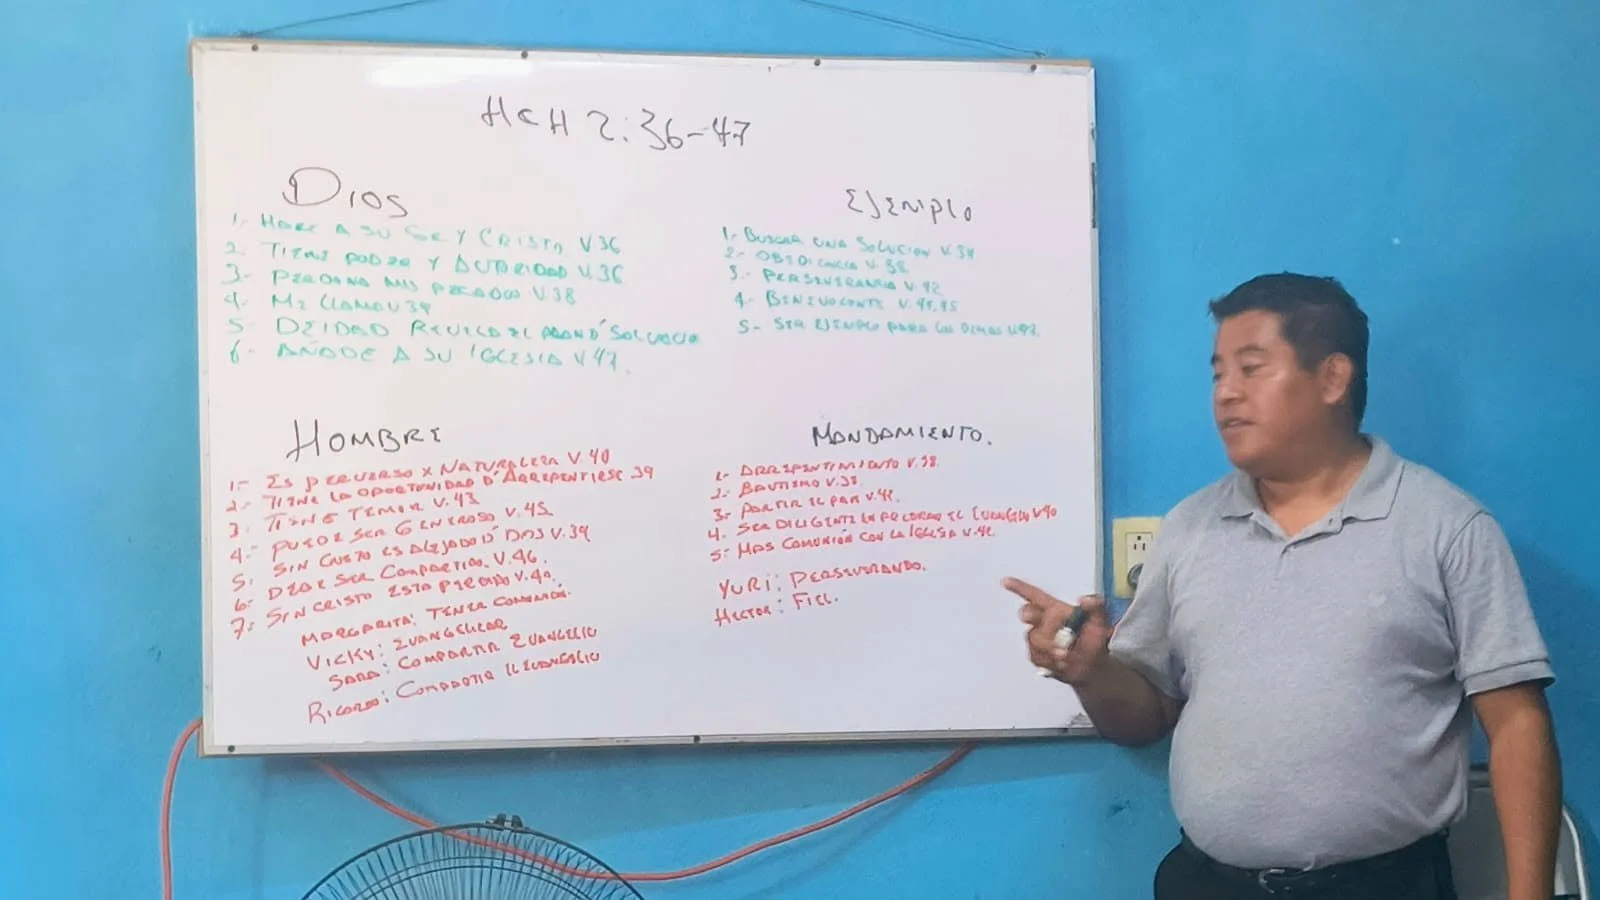 HCH 2:36-47
DIOS
1.- HACE A SU SR Y CRISTO V36
2. TIENE PODER Y AUTORIDAD V.36
3- PERDONA MIS PECADOS V.38
4- ME LLAMO V39
5- DEIDAD REVELA EL SOLUCION
6- AÑADE A SU IGLESIA V47.
EJEMPLO
1.- BUSCAR UNA SOLUCION V.37
2.- OBEDIENCIA V.38
3.- PERSEVERANCIA V.42
4- BENEVOLENTE V.45
5- SER EJEMPLO PARA LOS DEMAS V47.
HOMBRE
1.- ES PERVERSO X NATURALEZA V.40
2.- TIENE LA OPORTUNIDAD D' ARREPENTIRSE 39
3. TIENE TEMOR V.43
4.- PUEDE SER GENEROSO V.45
5. SIN CRISTO ES ALEJADO D' DIOS V.39
6- DEBE SER COMPARTIDO V.46.
7- SIN CRISTO ESTA PERDIDO V.40.
MARGARITA: TENER COMUNION.
VICKY: EVANGELIZAR
SARA: COMPARTIR EVANGELIO
RICARDO: COMPARTIR EL EVANGELIO
MANDAMIENTO.
1- ARREPENTIMIENTO V.38.
2- BAUTISMO V.38.
3- PARTIR EL PAN V.42.
4. SER DILIGENTE EN EL EVANGELIO V40
5- MAS COMUNIÓN CON LA IGLESIA V.42
YURI: PERSEVERANDO.
HECTOR: FIEL.